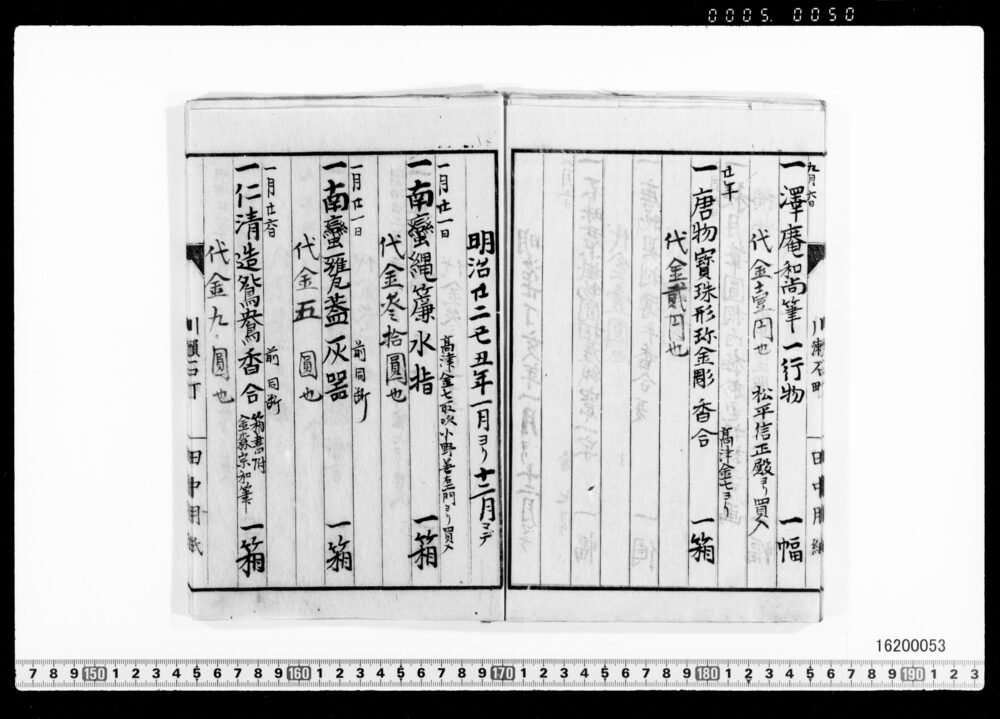 0005. 0050
九月六日
一澤庵和尚筆一行物 一幅
代金壹円也 松平信正殿ヨリ買入
廿年
一唐物寳珠形珎金彫香合 一箱
髙津金七ヨリ
代金貳円也
明治廿二己丑年一月ヨリ十二月マデ
一月廿一日
髙津金七取次小野善左衛門ヨリ買入
一南蠻縄簾水指 一箱
代金参拾圓也
一月廿一日 前同断
一南蠻甕蓋灰器 一箱
代金五圓也
一月廿六日 前同断
一仁清造鴛鴦香合 箱書附金森宗和筆 一箱
代金九圓也
田中用紙
16200053
7 8 9 150 1 2 3 4 5 6 7 8 9 160 1 2 3 4 5 6 7 8 9 170 1 2 3 4 5 6 7 8 9 180 1 2 3 4 5 6 7 8 9 190 1 2 3